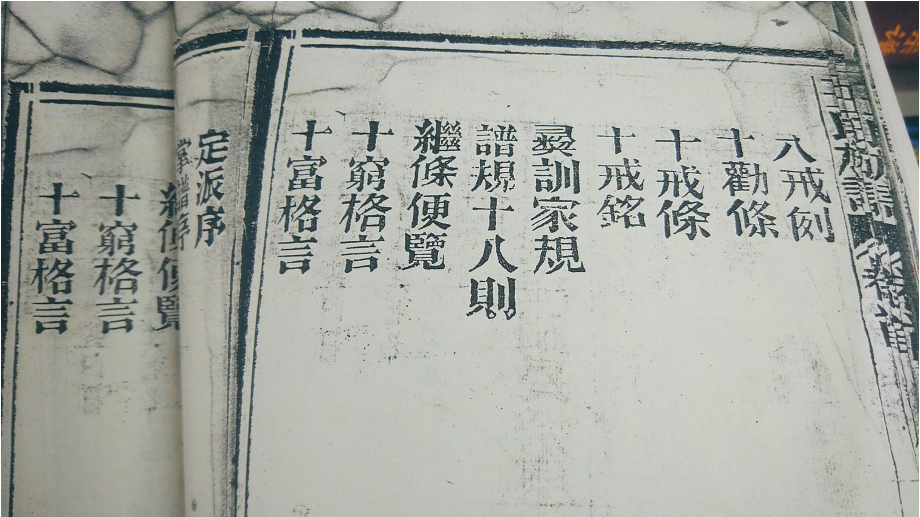 族譜 卷首
八戒例
十勸條
十戒條
十戒銘
彝訓家規
譜規十八則
繼條便覽
十窮格言
十富格言
定派序
譜序
便覽
十窮格言
十富格言